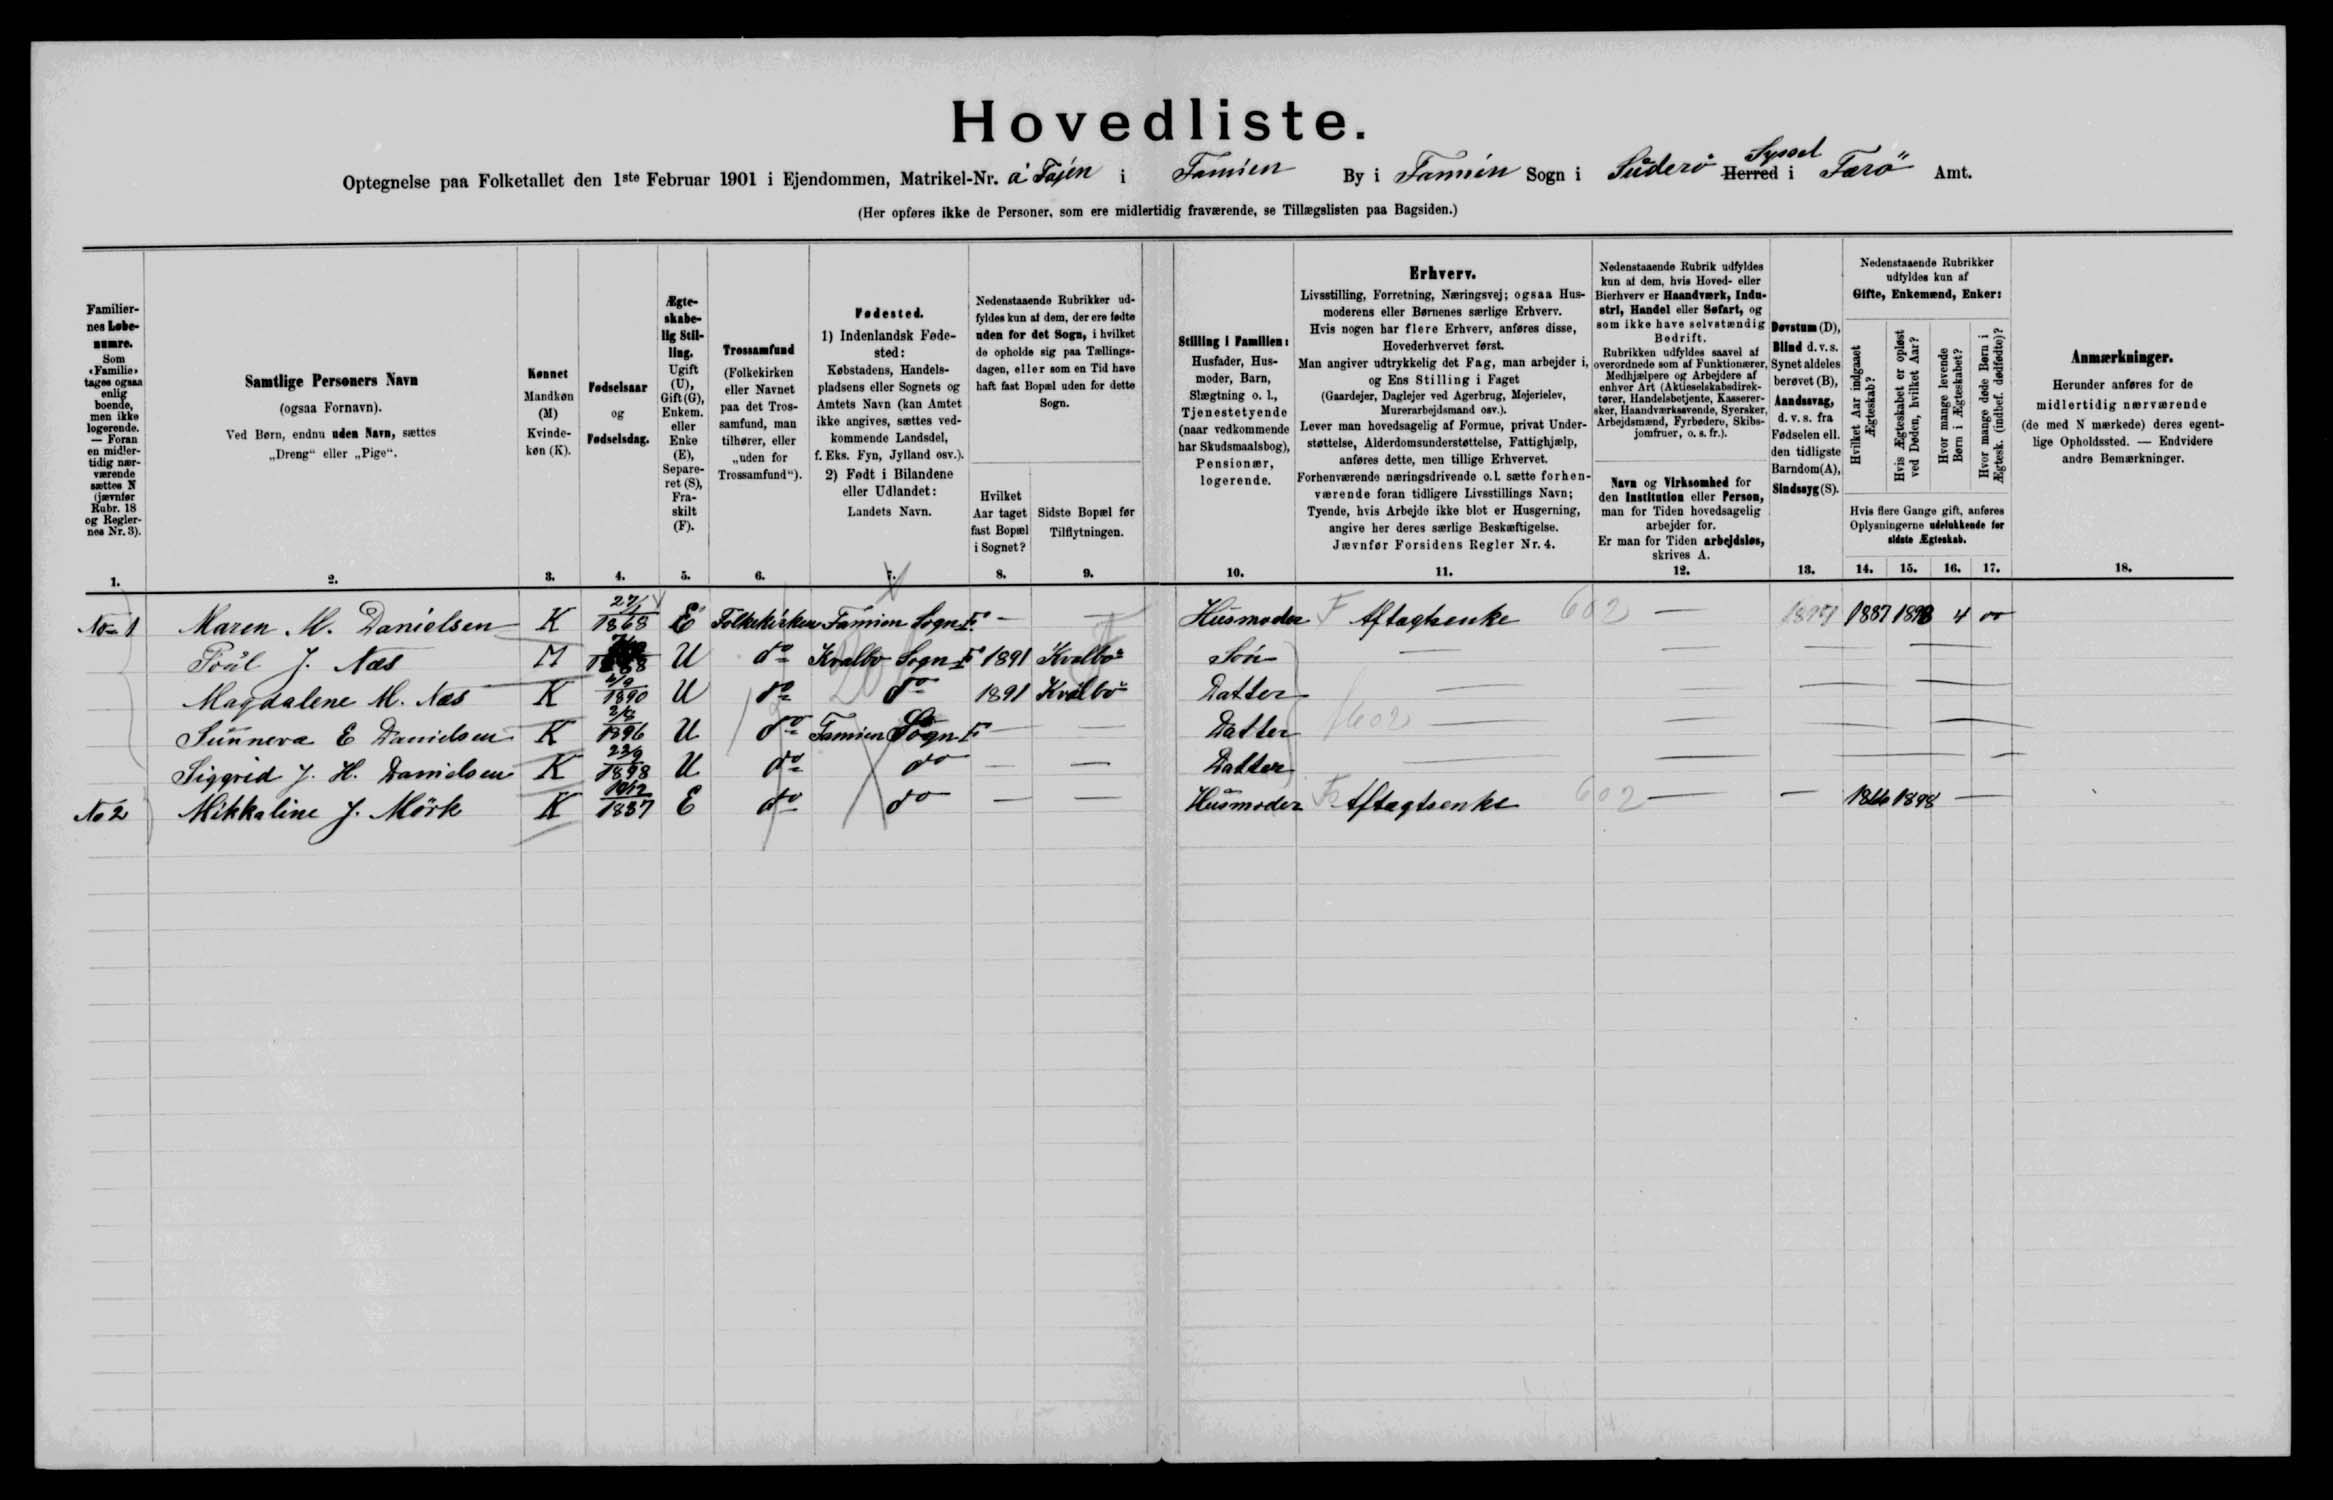 Hovedliste.
Optegnelse paa Folketallet den 1ste Februar 1901 i Ejendommen, Matrikel-Nr. á Tojen i Famien By i Famien Sogn i Süderö Syssel Herred i Færö Amt.
(Her opføres ikke de Personer, som ere midlertidig fraværende, se Tillægslisten paa Bagsiden.)
Familier-
nes Løbe-
numre.
Som
«Familie»
tages ogsaa
enlig
boende,
men ikke
logerende.
— Foran
en midler-
tidig nær-
værende
sættes N
(jævnfør
Rubr. 18
og Regler-
nes Nr. 3).
1.
Samtlige Personers Navn
(ogsaa Fornavn).
Ved Børn, endnu uden Navn, sættes
„Dreng“ eller „Pige“.
2.
Kønnet
Mandkøn
(M)
Kvinde-
køn (K).
3.
Fødselsaar
og
Fødselsdag.
4.
Ægte-
skabe-
lig Stil-
ling.
Ugift
(U),
Gift (G),
Enkem.
eller
Enke
(E),
Separe-
ret (S),
Fra-
skilt
(F).
5.
Trossamfund
(Folkekirken
eller Navnet
paa det Tros-
samfund, man
tilhører, eller
„uden for
Trossamfund“).
6.
Fødested.
1) Indenlandsk Føde-
sted:
Købstadens, Handels-
pladsens eller Sognets og
Amtets Navn (kan Amtet
ikke angives, sættes ved-
kommende Landsdel,
f. Eks. Fyn, Jylland osv.).
2) Født i Bilandene
eller Udlandet:
Landets Navn.
7.
Nedenstaaende Rubrikker ud-
fyldes kun af dem, der ere fødte
uden for det Sogn, i hvilket
de opholde sig paa Tællings-
dagen, eller som en Tid have
haft fast Bopæl uden for dette
Sogn.
Hvilket
Aar taget
fast Bopæl
i Sognet?
8.
Sidste Bopæl før
Tilflytningen.
9.
Stilling i Familien:
Husfader, Hus-
moder, Barn,
Slægtning o. l.,
Tjenestetyende
(naar vedkommende
har Skudsmaalsbog),
Pensionær,
logerende.
10.
Erhverv.
Livsstilling, Forretning, Næringsvej; ogsaa Hus-
moderens eller Børnenes særlige Erhverv.
Hvis nogen har flere Erhverv, anføres disse,
Hovederhvervet først.
Man angiver udtrykkelig det Fag, man arbejder i,
og Ens Stilling i Faget
(Gaardejer, Daglejer ved Agerbrug, Mejerielev,
Murerarbejdsmand osv.).
Lever man hovedsagelig af Formue, privat Under-
støttelse, Alderdomsunderstøttelse, Fattighjælp,
anføres dette, men tillige Erhvervet.
Forhenværende næringsdrivende o. l. sætte forhen-
værende foran tidligere Livsstillings Navn;
Tyende, hvis Arbejde ikke blot er Husgerning,
angive her deres særlige Beskæftigelse.
Jævnfør Forsidens Regler Nr. 4.
11.
Nedenstaaende Rubrik udfyldes
kun af dem, hvis Hoved- eller
Bierhverv er Haandværk, Indu-
stri, Handel eller Søfart, og
som ikke have selvstændig
Bedrift.
Rubrikken udfyldes saavel af
overordnede som af Funktionærer,
Medhjælpere og Arbejdere af
enhver Art (Aktieselskabsdirek-
tører, Handelsbetjente, Kasserer-
sker, Haandværkssvende, Syersker,
Arbejdsmænd, Fyrbødere, Skibs-
jomfruer, o. s. fr.).
Navn og Virksomhed for
den Institution eller Person,
man for Tiden hovedsagelig
arbejder for.
Er man for Tiden arbejdsløs,
skrives A.
12.
Døvstum (D),
Blind d. v. s.
Synet aldeles
berøvet (B),
Aandssvag,
d. v. s. fra
Fødselen ell.
den tidligste
Barndom (A),
Sindssyg (S).
13.
Nedenstaaende Rubrikker
udfyldes kun af
Gifte, Enkemænd, Enker:
Hvilket Aar indgaaet
Ægteskab?
Hvis Ægteskabet er opløst
ved Døden, hvilket Aar?
Hvor mange levende
Børn i Ægteskabet?
Hvor mange døde Børn i
Ægtesk. (indbef. dødfødte)?
Hvis flere Gange gift, anføres
Oplysningerne udelukkende for
sidste Ægteskab.
14. 15. 16. 17.
Anmærkninger.
Herunder anføres for de
midlertidig nærværende
(de med N mærkede) deres egent-
lige Opholdssted. — Endvidere
andre Bemærkninger.
18.
No 1 Maren M. Danielsen K 1868 E Folkekirken Famien Sogn F. — — Husmoder F Aftagtsenke 602 — 1887 1898 4 00
Poül J. Næs M U do Kvalbo Sogn F 1891 Kvalbö Sön — — — —
Magdalene M. Næs K 1890 U do do 1891 Kvalbö Datter — — — —
Sünneva E Danielsen K 2/8 1896 U do Famien Sogn F — — Datter 602 — — — —
Siggrid J. H. Danielsen K 23/9 1898 U do do — — Datter — — — —
No 2 Mikkaline J. Mörk K 1837 E do do — — Husmoder F Aftagtsenke 602 — — 1866 1898 —